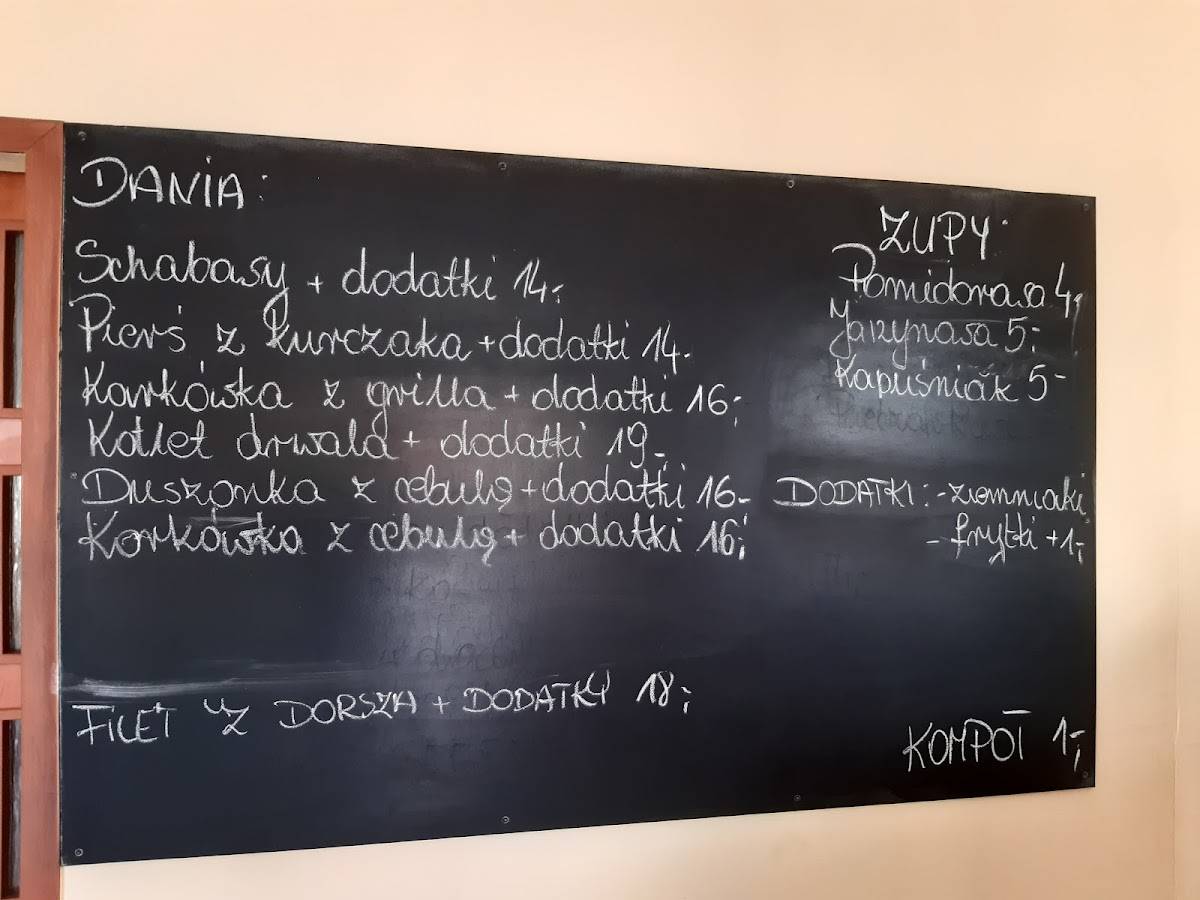 DANIA:
Schabasy + dodatki 14,-
Pierś z kurczaka + dodatki 14.-
Karkówka z grilla + dodatki 16,-
Kotlet drwala + dodatki 19,-
Duszonka z cebulą + dodatki 16,-
Karkówka z cebulą + dodatki 16,-
FILET Z DORSZA + DODATKI 18,-
ZUPY:
Pomidorasa 4,-
Jarzynasa 5,-
Kapuśniak 5-
DODATKI: - ziemniaki
- frytki +1,-
KOMPOT 1,-